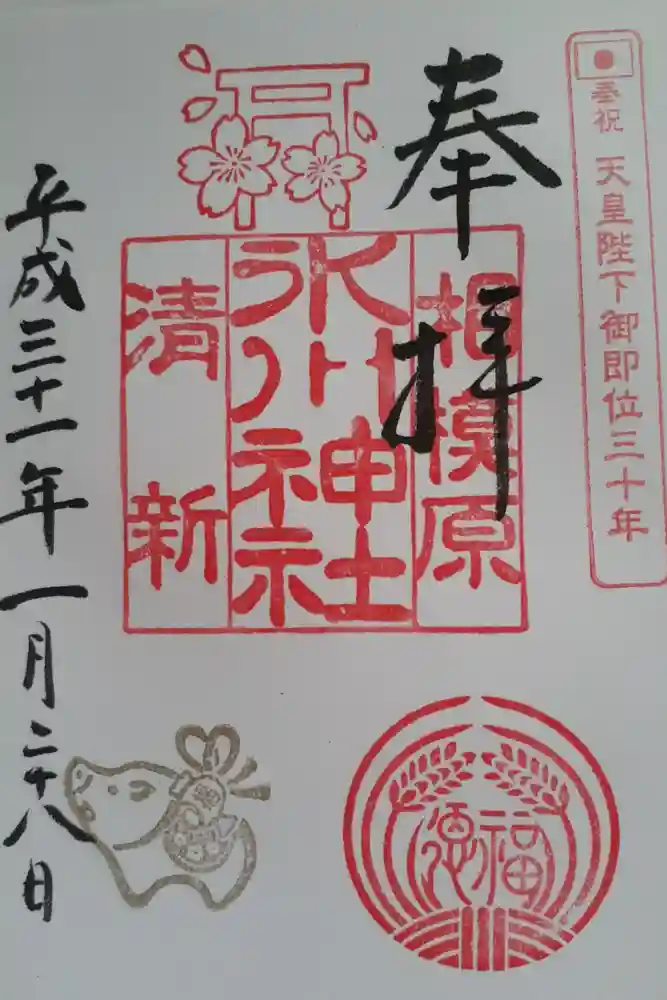 奉祝 天皇陛下御即位三十年
奉拝
相模原
氷川神社
清新
平成三十一年一月二十八日
福